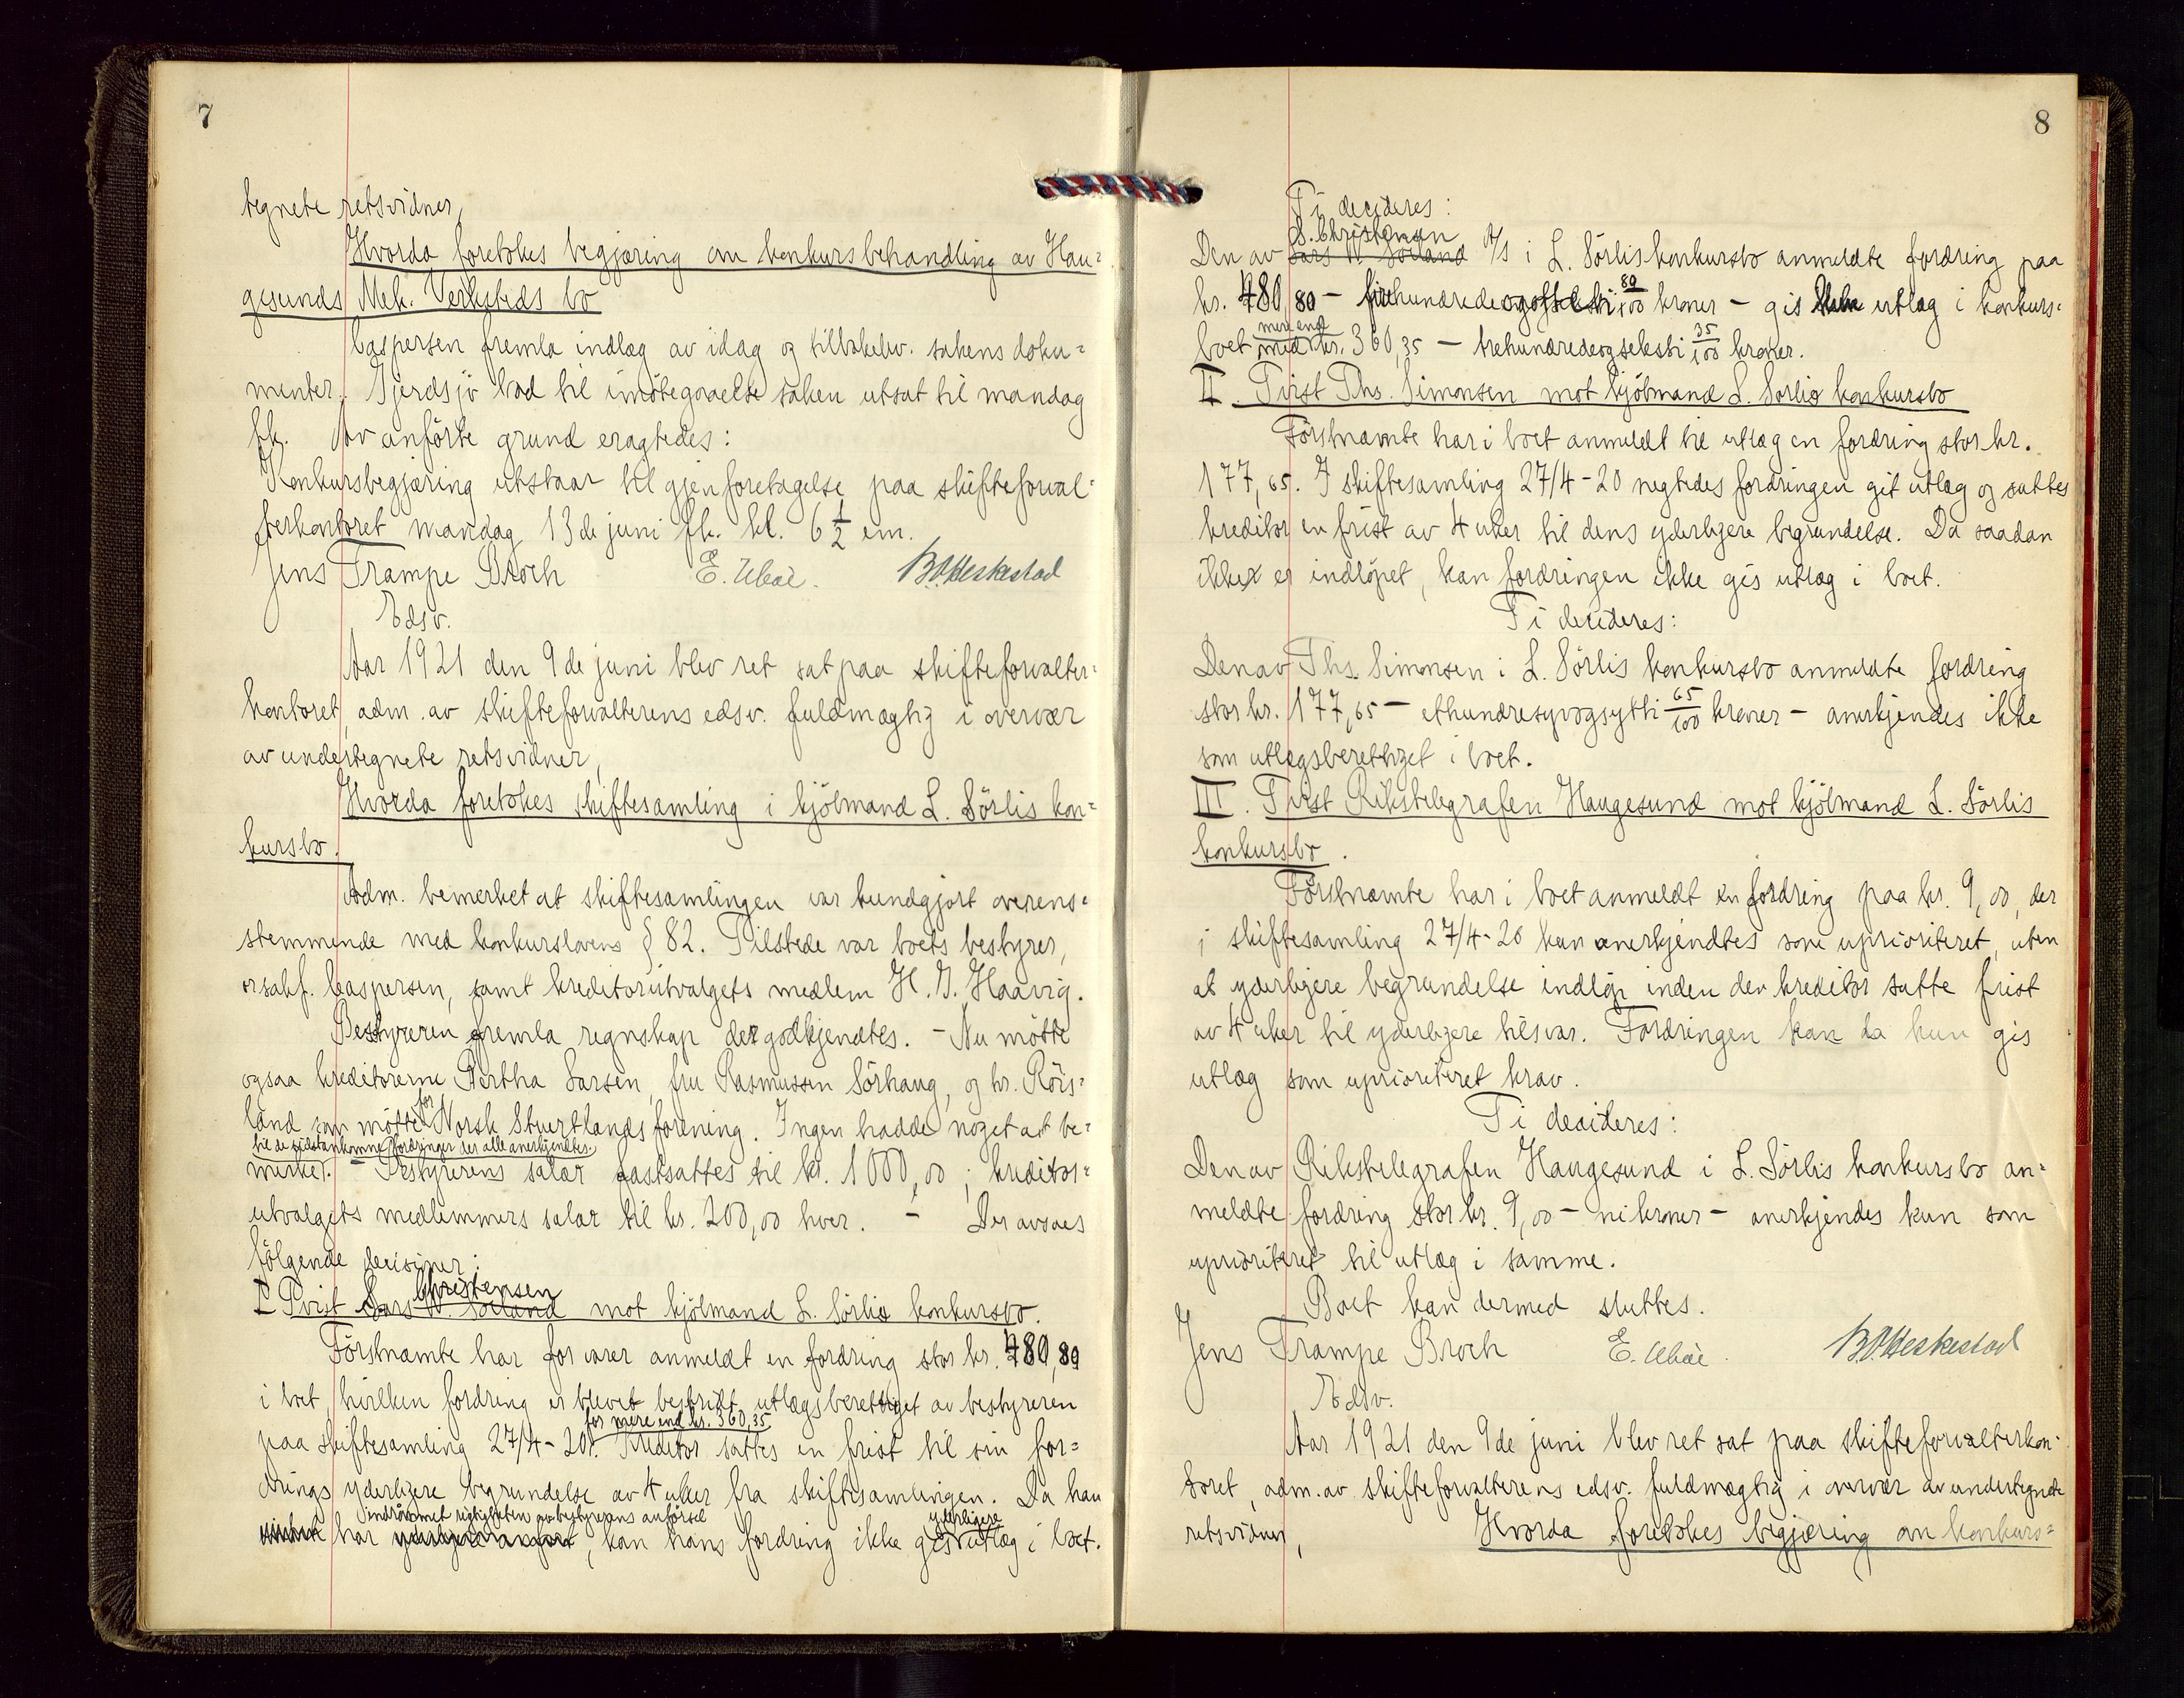 7
tegnete retsvidner,
Hvorda foretokes begjæring om konkursbehandling av Hau=
gesunds Mek. Verksteds bo
Caspersen fremla indlæg av idag og tilbakelev. sakens doku=
menter. Gjerdsjö bad til imötegaaelse saken utsat til mandag
fk. Av anförte grund eragtedes:
Konkursbegjæring utstaar til gjenforetagelse paa skifteforval=
terkontoret mandag 13de juni fk. kl. 6 1/2 em.
Jens Trampe Broch E. Ubøe. B.O. Heskestad
Edsv.
Aar 1921 den 9de juni blev ret sat paa skifteforvalter=
kontoret, adm. av skifteforvalterens edsv. fuldmægtig i overvær
av undertegnete retsvidner,
Hvorda foretokes skiftesamling i kjöbmand L. Sörlis kon=
kursbo.
Adm. bemerket at skiftesamlingen var kundgjort overens=
stemmende med konkurslovens § 82. Tilstede var boets bestyrer,
orsakf. Caspersen, samt kreditorutvalgets medlem H. G. Haavig.
Bestyreren fremla regnskap der godkjendtes. – Nu mötte
ogsaa kreditorerne Bertha Larsen, fru Rasmussen Sörhaug, og hr. Röis=
land som mötte for Norsk Stuertlands forening. Ingen hadde noget at be=
til de sidstankomne fordringer der alle anerkjendtes.
merke. – Bestyrerens salær fastsattes til kr. 1000,00; kreditor=
utvalgets medlemmers salær til kr. 200,00 hver. – Der avsaes
fölgende decisioner:
Christensen
I Tvist Lars W. Solland mot kjöbmand L. Sörlis konkursbo.
Förstnævnte har for varer anmeldt en fordring stor kr. 480,80
i boet, hvilken fordring er blevet bestridt utlægsberettiget av bestyreren
for mere end kr. 360,35
paa skiftesamling 27/4-20. Kreditor sattes en frist til sin for=
drings yderligere begrundelse av 4 uker fra skiftesamlingen. Da han
indrömmet rigtigheten av bestyrerens anförsel yderligere
har , kan hans fordring ikke gis utlæg i boet.
8
Ti decideres:
S. Christensen
Den av Lars W. Solland A/S i L. Sörlis konkursbo anmeldte fordring paa
kr. 480,80 – firehundredeogotteti 80/100 kroner – gis ikke utlæg i konkurs=
mere end
boet med kr. 360,35 – trehundredeogseksti 35/100 kroner.
II. Tvist Ths. Simonsen mot kjöbmand L. Sörlis konkursbo
Förstnævnte har i boet anmeldt til utlæg en fordring stor kr.
177,65. I skiftesamling 27/4-20 negtedes fordringen git utlæg og sattes
kreditor en frist av 4 uker til dens yderligere begrundelse. Da saadan
ikke er indlöpet, kan fordringen ikke gis utlæg i boet.
Ti decideres:
Den av Ths. Simonsen i L. Sörlis konkursbo anmeldte fordring
stor kr. 177,65 – ethundresyvogsytti 65/100 kroner – anerkjendes ikke
som utlægsberettiget i boet.
III. Tvist Rikstelegrafen Haugesund mot kjöbmand L. Sörlis
konkursbo.
Förstnævnte har i boet anmeldt en fordring paa kr. 9,00, der
i skiftesamling 27/4-20 kun anerkjendtes som uprioriteret, uten
at yderligere begrundelse indlöp inden den kreditor satte frist
av 4 uker til yderligere tilsvar. Fordringen kan da kun gis
utlæg som uprioriteret krav.
Ti decideres:
Den av Rikstelegrafen Haugesund i L. Sörlis konkursbo an=
meldte fordring stor kr. 9,00 – ni kroner – anerkjendes kun som
uprioriteret til utlæg i samme.
Boet kan dermed sluttes.
Jens Trampe Broch E. Ubøe. B.O. Heskestad
Edsv.
Aar 1921 den 9de juni blev ret sat paa skifteforvalterkon=
toret, adm. av skifteforvalterens edsv. fuldmægtig i overvær av undertegnete
retsvidner, Hvorda foretokes begjæring om konkurs=